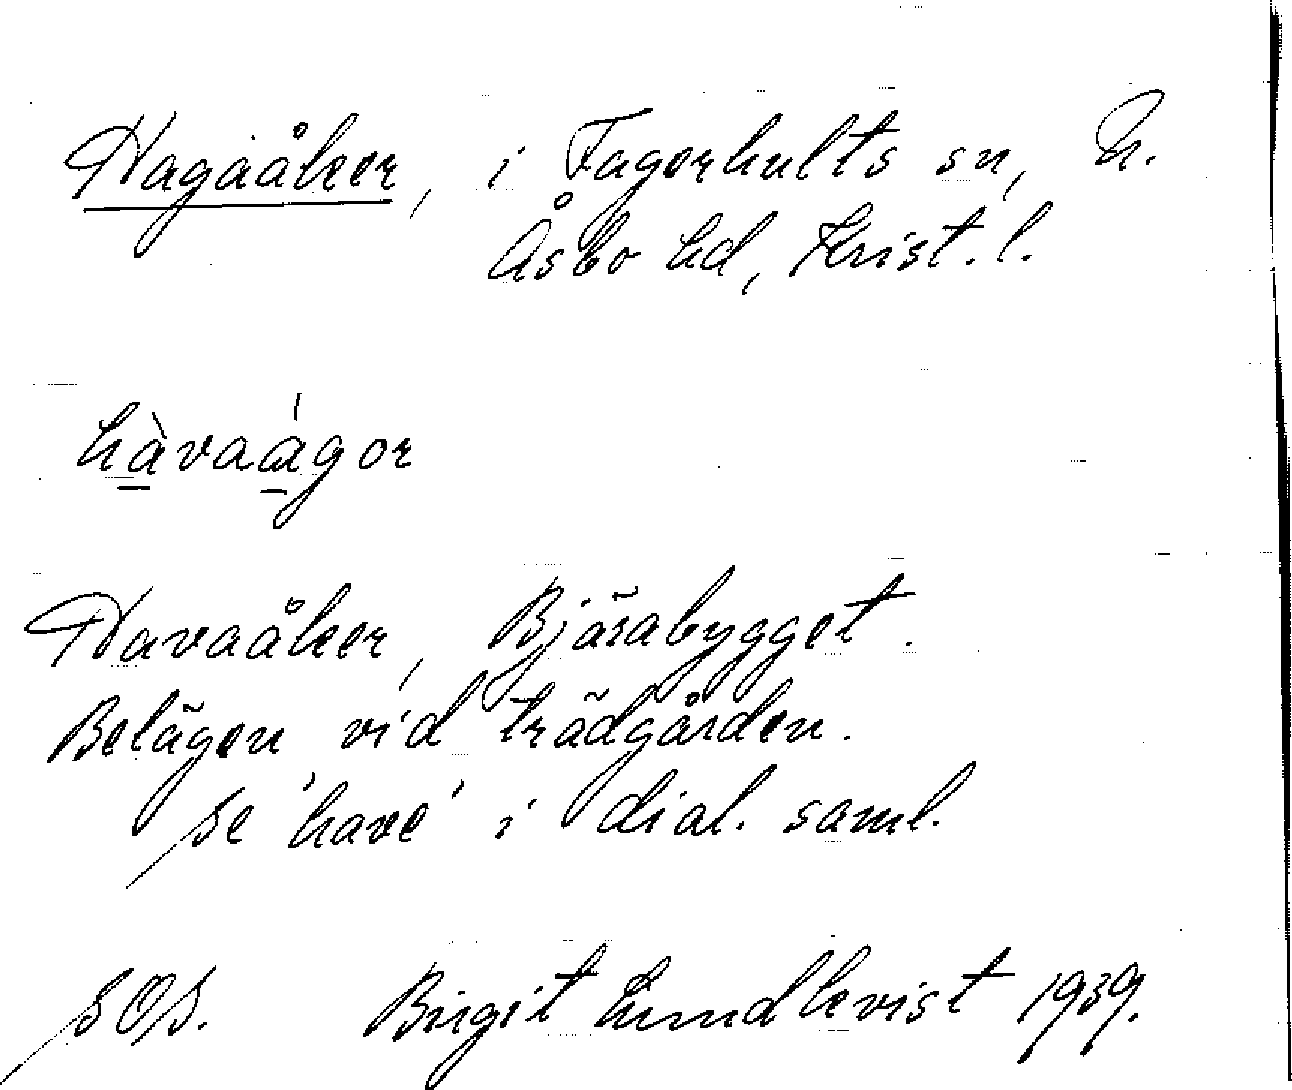 Hagaåker, i Fagerhults sn, N.
Åsbo hd, Krist. l.
hàvaágor
Havaåker, Bjärabygget.
Belägen vid trädgården.
Se 'have' i dial. saml.
SOS. Birgit Lundkvist 1939.